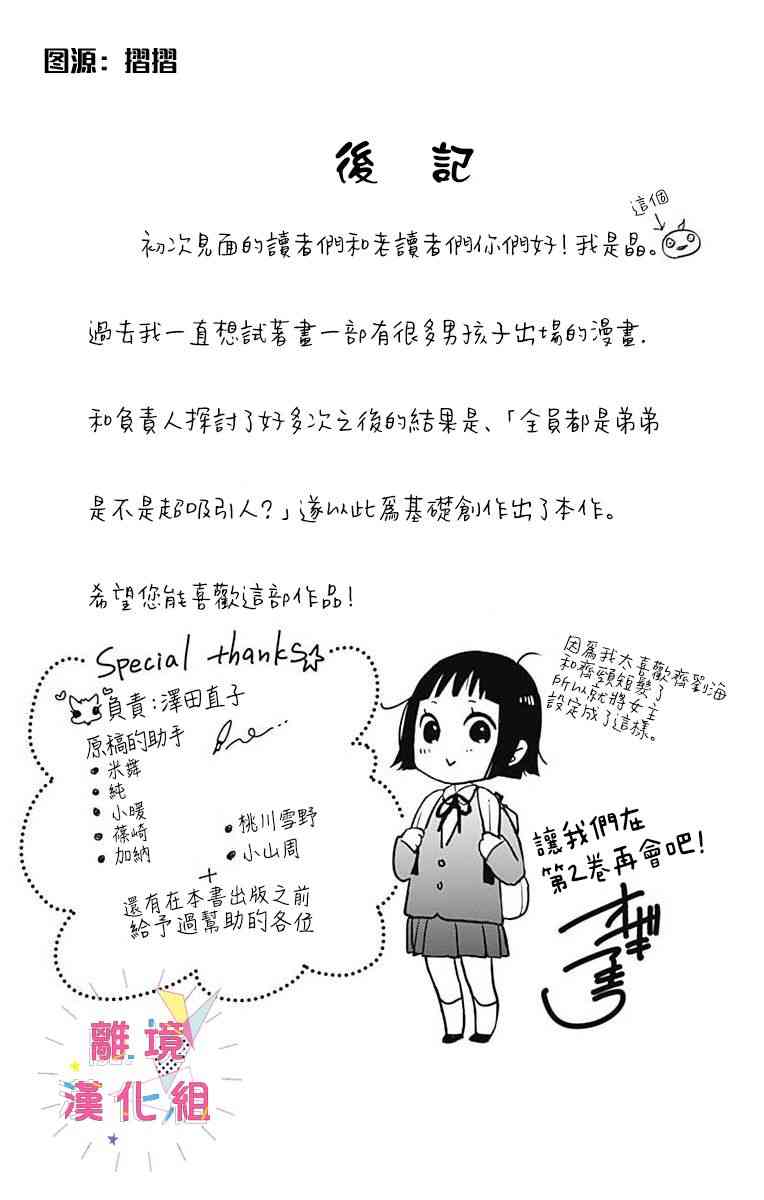 图源：摺摺
後 記
這個
初次見面的讀者們和老讀者們你們好！我是晶。
過去我一直想試著畫一部有很多男孩子出場的漫畫.
和負責人探討了好多次之後的結果是、「全員都是弟弟
是不是超吸引人？」遂以此為基礎創作出了本作。
希望您能喜歡這部作品！
Special thanks
負責：澤田直子
原稿的助手
• 米舞
• 純
• 小暖
• 篠崎
• 加納
• 桃川雪野
• 小山周
+
還有在本書出版之前
給予過幫助的各位
因為我太喜歡齊劉海
和齊頸短髮了
所以就將女主
設定成了這樣。
讓我們在
第2卷再會吧！
離境
漢化組